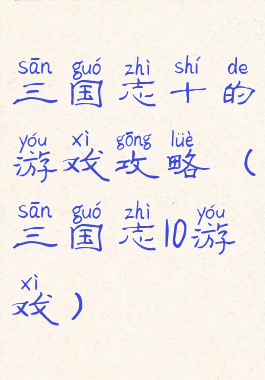 sān guó zhì shí de
三国志十的
yóu xì gōng lüè
游戏攻略（
sān guó zhì yóu
三国志10游
xì
戏）